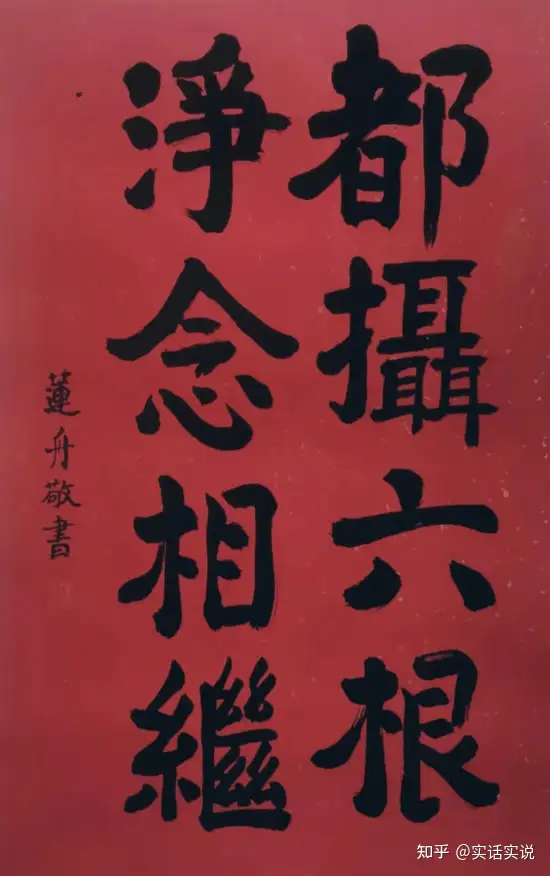 都攝六根
淨念相繼
蓮舟敬書
知乎 @实话实说